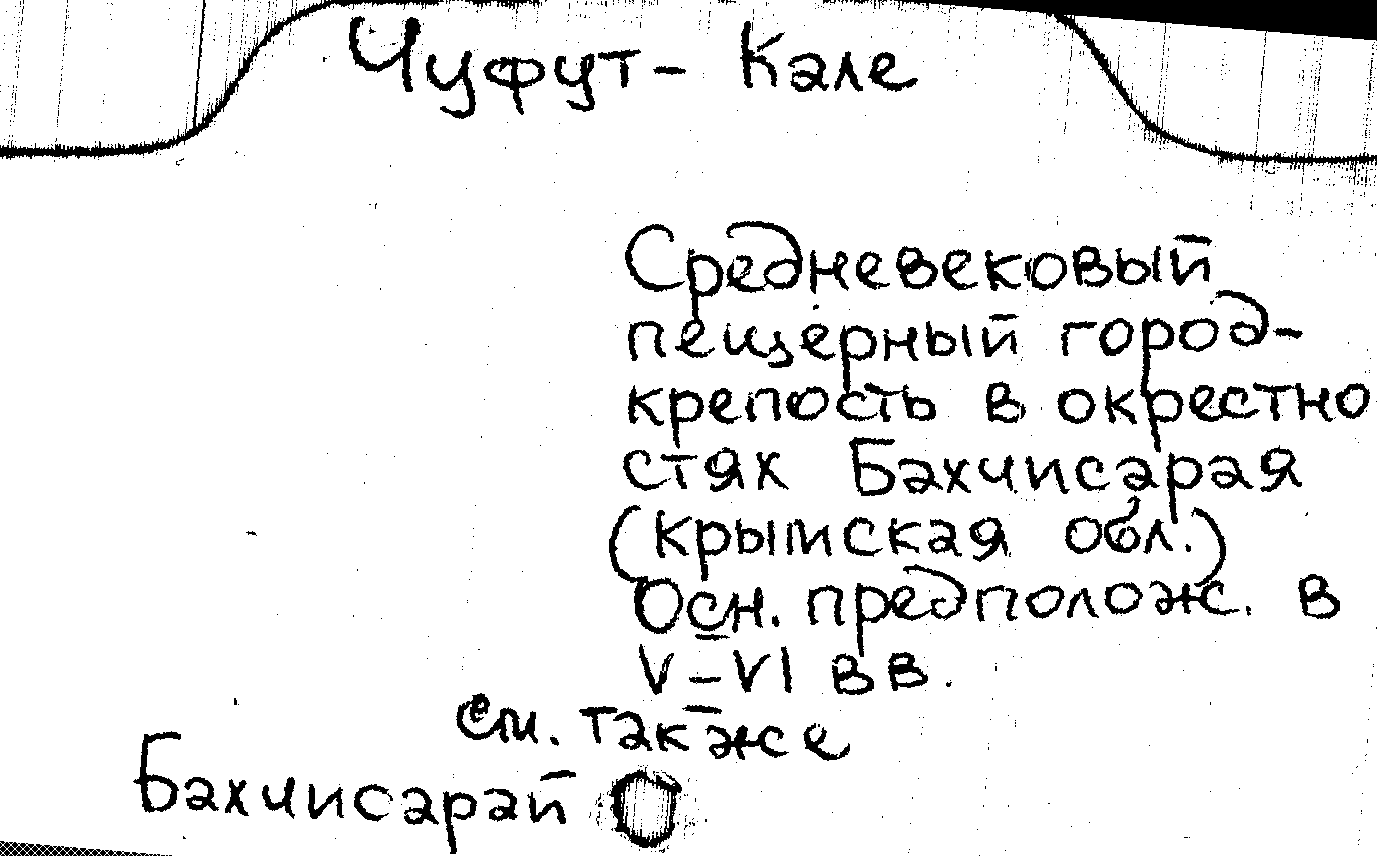 Чуфут - Кале
Средневековый
пещерный город-
крепость в окрестно
стях Бахчисарая
(Крымская обл.)
Осн. предполож. в
V–VI вв.
см. также
Бахчисарай